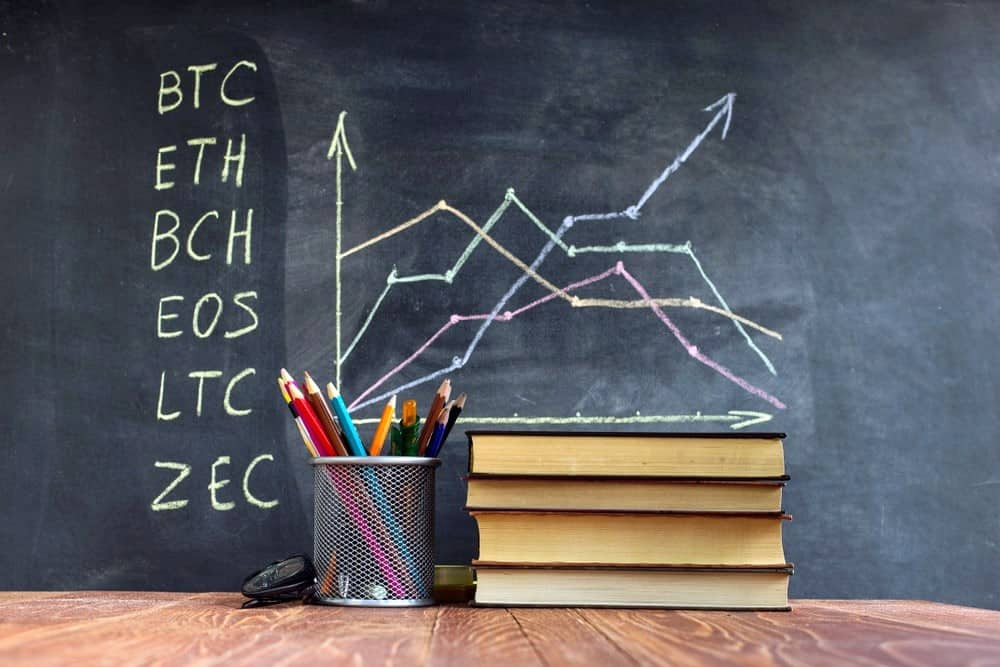 BTC
ETH
BCH
EOS
LTC
ZEC